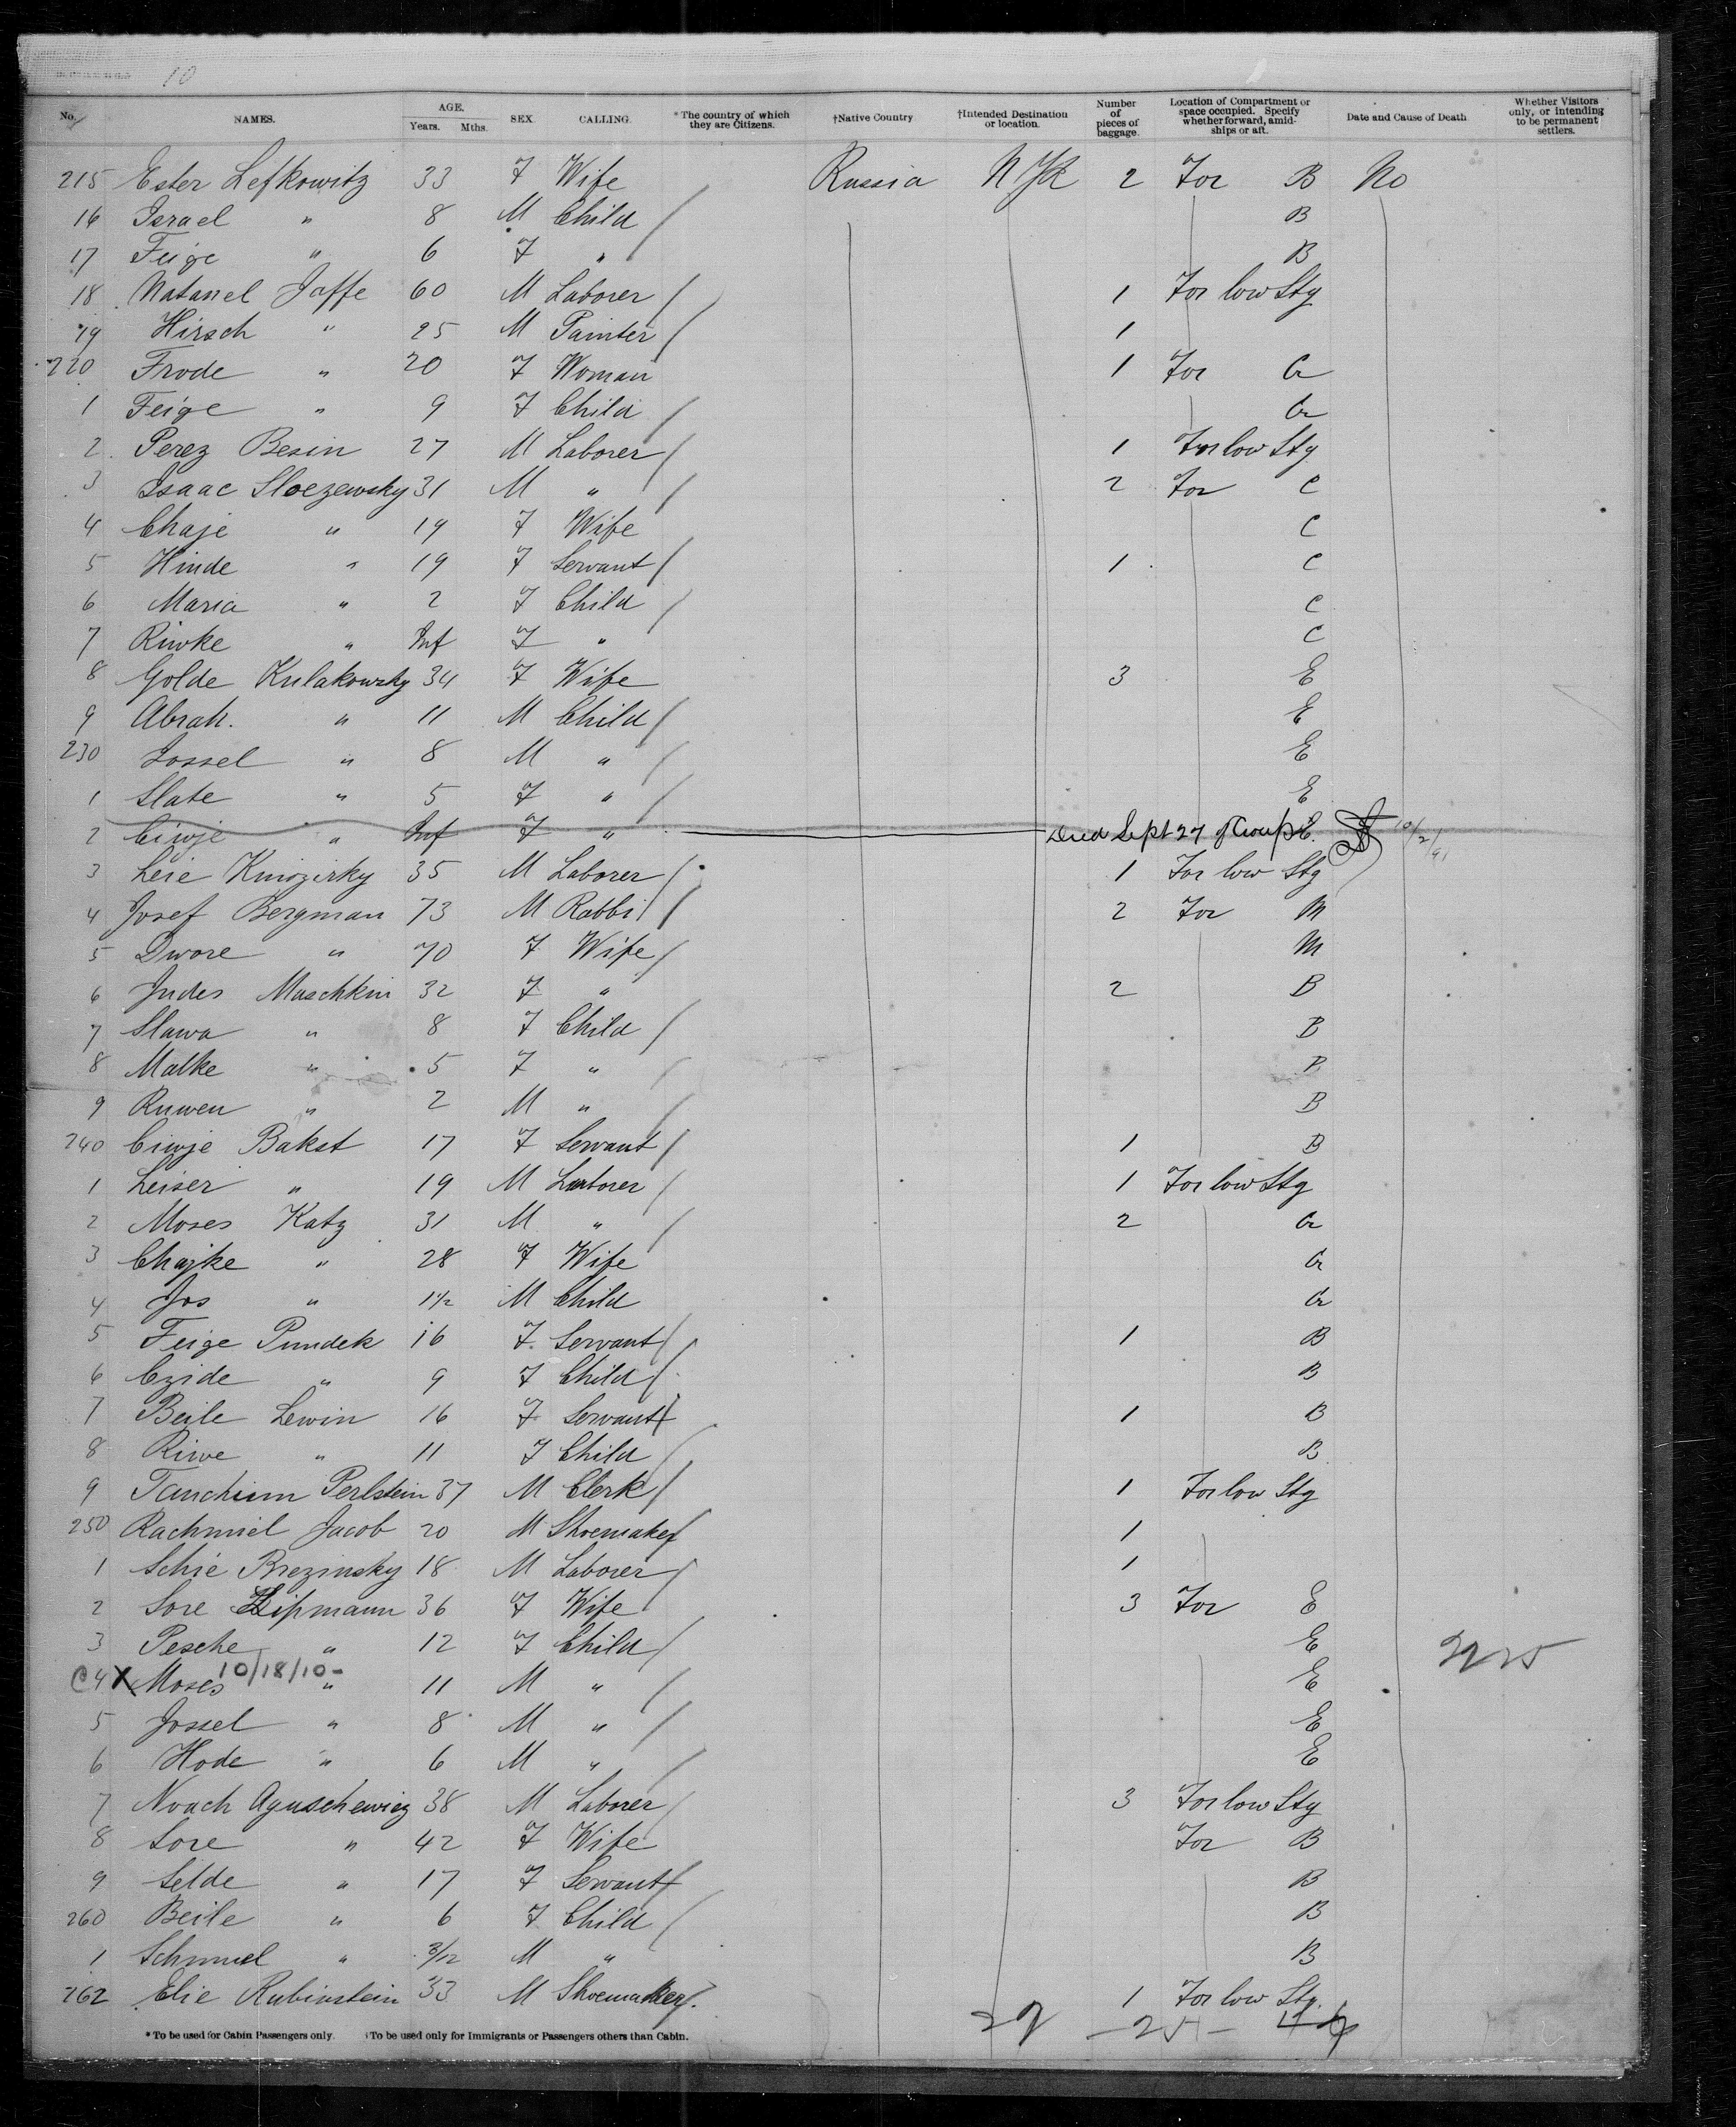 10
No. NAMES. AGE. Years. Mths. SEX. CALLING. *The country of which they are Citizens. †Native Country †Intended Destination or location. Number of pieces of baggage. Location of Compartment or space occupied. Specify whether forward, amidships or aft. Date and Cause of Death Whether Visitors only, or intending to be permanent settlers.
215 Ester Lefkowitz 33 F Wife Russia N YK 2 For B No
16 Israel " 8 M Child B
17 Feige " 6 F " B
18 Natanel Jaffe 60 M Laborer 1 For low Stg
19 Hirsch " 25 M Painter 1
220 Frode " 20 F Woman 1 For G
1 Feige " 9 F Child G
2 Perez Besin 27 M Laborer 1 For low Stg
3 Isaac Sloczewsky 31 M " 2 For C
4 Chaje " 19 F Wife C
5 Hinde " 19 F Servant 1 C
6 Maria " 2 F Child C
7 Riwke " Inf F " C
8 Golde Kulakowsky 34 F Wife 3 E
9 Abrah. " 11 M Child E
230 Jossel " 8 M " E
1 Slate " 5 F " E
2 Ciwje " Inf F " Died Sept 27 of Croup E. 10/2/91
3 Leie 35 M Laborer 1 For low Stg
4 Josef Bergman 73 M Rabbi 2 For M
5 Dwore " 70 F Wife M
6 Judes Maschkin 32 F " 2 B
7 Slawa " 8 F Child B
8 Malke " 5 F " B
9 Ruwen " 2 M " B
240 Ciwje Bakst 17 F Servant 1 B
1 Leiser " 19 M Laborer 1 For low Stg
2 Moses Katz 31 M " 2 G
3 Chajke " 28 F Wife G
4 Jos " 1 1/2 M Child G
5 Feige Pundek 16 F Servant 1 B
6 Czide " 9 F Child B
7 Beile Lewin 16 F Servant 1 B
8 Riwe " 11 F Child B
9 Tanchum Perlstein 37 M Clerk 1 For low Stg
250 Rachmiel Jacob 20 M Shoemaker 1
1 Schie Brezinsky 18 M Laborer 1
2 Sore Lipmann 36 F Wife 3 For E
3 Pesche " 12 F Child E
C4 X Moses 10/18/10- " 11 M " E
5 Jossel " 8 M " E
6 Hode " 6 M " E
7 Noach Aguschewicz 38 M Laborer 3 For low Stg
8 Sore " 42 F Wife For B
9 Selde " 17 F Servant B
260 Beile " 6 F Child B
1 Schmuel " 3/12 M " B
262 Elie Rubinstein 33 M Shoemaker. 1 For low Stg.
*To be used for Cabin Passengers only. †To be used only for Immigrants or Passengers others than Cabin.